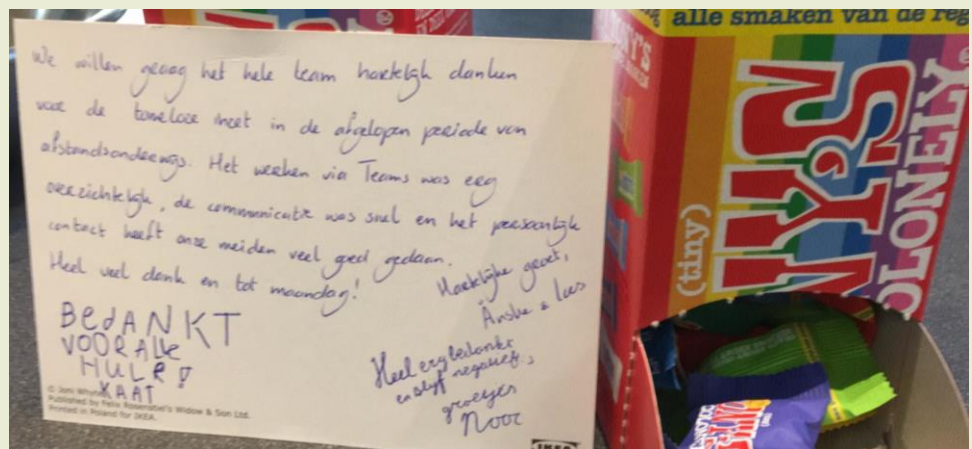 We willen graag het hele team hartelijk danken
voor de tomeloze inzet in de afgelopen periode van
afstandsonderwijs. Het werken via Teams was erg
overzichtelijk, de communicatie was snel en het persoonlijk
contact heeft onze meiden veel goed gedaan.
Heel veel dank en tot maandag!
Hartelijke groet,
Anske &
BEdANKT
VOOR ALLE
HULP!
KAAT
Heel erg bedankt
en blijf negatief.
groetjes
Noor
© Joni Whyte
Published by Felix Rosenstiel's Widow & Son Ltd.
Printed in Poland for IKEA.
IKEA
alle smaken van de reg
(tiny)
NY'S
OLONELY